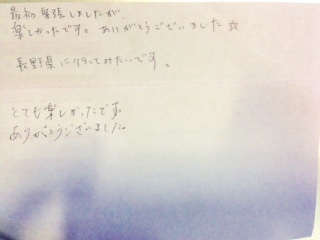 最初緊張しましたが、
楽しかったです。ありがとうございました☆
長野県に行ってみたいです。
とても楽しかったです。
ありがとうございました。